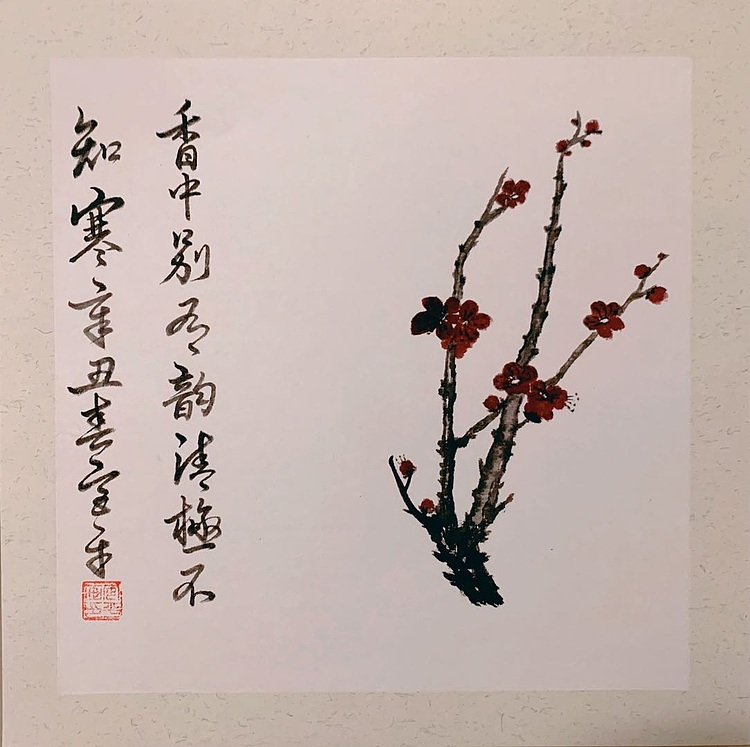 香中别有韵清極不
知寒辛丑春宝平